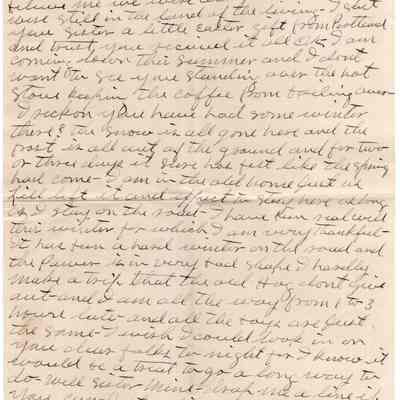 believe me we were
still in the land of the living - I sent
your sister a little easter gift from Portland
and trust you received it all O.K. I am
coming down this summer and I dont
want to see you standing over the hot
stove keepin the coffee from boiling over
I reckon you have had some winter
there? the snow is all gone here and the
frost is all out of the ground and for two
or three days it sure has felt like the spring
had come - I am in the old house just as
left it and just as long
as I stay on the road - I have been real well
this winter for which I am very thankful -
it has been a hard winter on the road and
the power is in very bad shape I hardly
make a trip that the old Hog dont give
out - and I am all the way from 1 to 3
hours late - and all the boys are just
the same - I wish I could look in on
you dear folks to night for I know it
would be a treat to go a long way to
do - well sister mine - drop me a line if
you